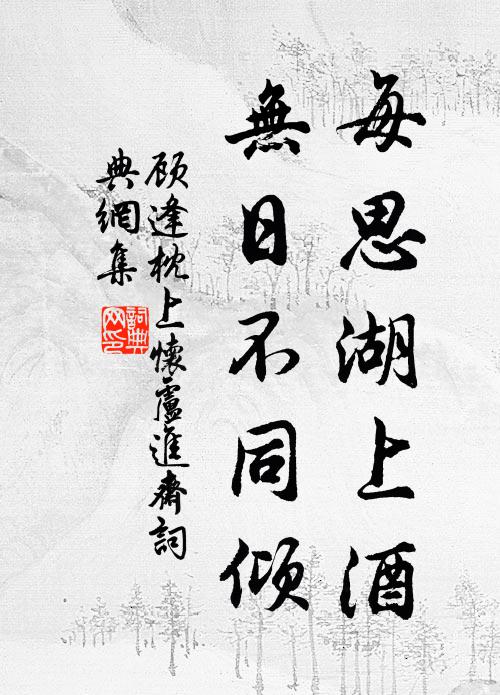 每思湖上酒
無日不同傾
顾逢枕上懷盧進齋詞
典網集
詞典
网印